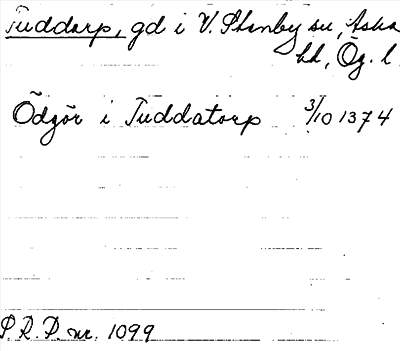 Tuddarp, gd i V. Stenby sn, Aska
hd, Ög. l.
Ödgör i Tuddatorp 3/10 1374
P.R.P. nr. 1099